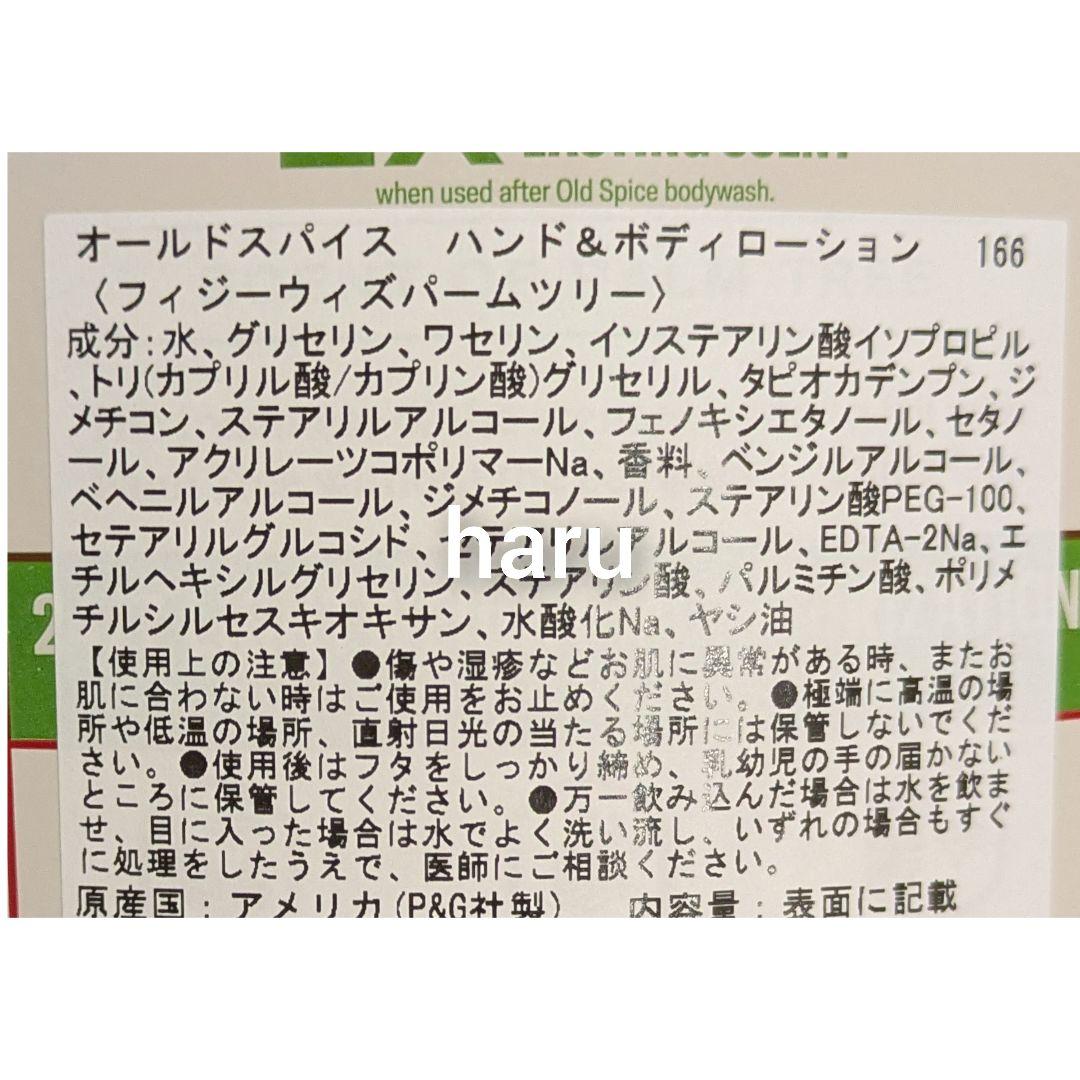 LASTING SCENT
when used after Old Spice bodywash.
オールドスパイス ハンド＆ボディローション 166
〈フィジーウィズパームツリー〉
成分:水、グリセリン、ワセリン、イソステアリン酸イソプロピル
、トリ(カプリル酸/カプリン酸)グリセリル、タピオカデンプン、ジ
メチコン、ステアリルアルコール、フェノキシエタノール、セタノ
ール、アクリレーツコポリマーNa、香料、ベンジルアルコール、
ベヘニルアルコール、ジメチコノール、ステアリン酸PEG-100、
セテアリルグルコシド、セテアリルアルコール、EDTA-2Na、エ
チルヘキシルグリセリン、ステアリン酸、パルミチン酸、ポリメ
チルシルセスキオキサン、水酸化Na、ヤシ油
haru
【使用上の注意】●傷や湿疹などお肌に異常がある時、またお
肌に合わない時はご使用をお止めください。●極端に高温の場
所や低温の場所、直射日光の当たる場所には保管しないでくだ
さい。●使用後はフタをしっかり締め、乳幼児の手の届かない
ところに保管してください。●万一飲み込んだ場合は水を飲ま
せ、目に入った場合は水でよく洗い流し、いずれの場合もすぐ
に処理をしたうえで、医師にご相談ください。
原産国：アメリカ(P&G社製) 内容量：表面に記載